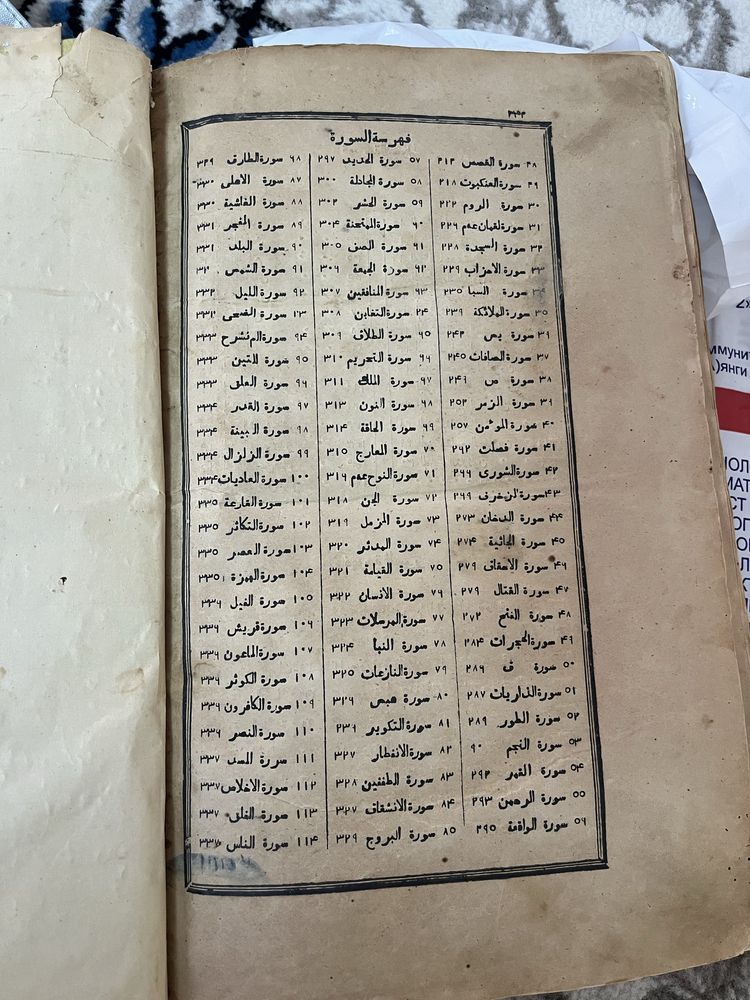 فهرسة السورة
٢٨ سورة القصص ٢١٢
٢٩ سورة العنكبوت ٢١٨
٣٠ سورة الروم ٢٢٢
٣١ سورة لقمان عم ٢٢٦
٣٢ سورة السجدة ٢٢٨
٣٣ سورة الاحزاب ٢٢٩
٣٤ سورة السبا ٢٣٥
٣٥ سورة الملائكة ٢٣٩
٣٦ سورة يس ٢٤٢
٣٧ سورة الصافات ٢٤٥
٣٨ سورة ص ٢٤٩
٣٩ سورة الزمر ٢٥٢
٤٠ سورة المؤمن ٢٥٧
٤١ سورة فصلت ٢٦٢
٤٢ سورة الشورى ٢٦٦
٤٣ سورة الزخرف ٢٦٩
٤٤ سورة الدخان ٢٧٣
٤٥ سورة الجاثية ٢٧٤
٤٦ سورة الاحقاف ٢٧٦
٤٧ سورة القتال ٢٧٩
٤٨ سورة الفتح ٢٧٢
٤٩ سورة الحجرات ٢٨٤
٥٠ سورة ق ٢٨٦
٥١ سورة الذاريات ٢٨٧
٥٢ سورة الطور ٢٨٩
٥٣ سورة النجم ٩٠
٥٤ سورة القمر ٢٩٢
٥٥ سورة الرحمن ٢٩٣
٥٦ سورة الواقعة ٢٩٥
٥٧ سورة الحديد ٢٩٧
٥٨ سورة المجادلة ٣٠٠
٥٩ سورة الحشر ٣٠٢
٦٠ سورة الممتحنة ٣٠٤
٦١ سورة الصف ٣٠٥
٦٢ سورة الجمعة ٣٠٦
٦٣ سورة المنافقين ٣٠٧
٢٤ سورة التغابن ٣٠٨
٦٥ سورة الطلاق ٣٠٩
٦٦ سورة التحريم ٣١٠
٦٧ سورة الملك ٣١١
٦٨ سورة النون ٣١٣
٦٩ سورة الحاقة ٣١٤
٧٠ سورة المعارج ٣١٥
٧١ سورة النوح عم ٣١٦
٧٢ سورة الجن ٣١٨
٧٣ سورة المزمل ٣١٩
٧٤ سورة المدثر ٣٢٠
٧٥ سورة القيامة ٣٢١
٧٦ سورة الانسان ٣٢٢
٧٧ سورة المرسلات ٣٢٣
٧٨ سورة النبا ٣٢٤
٧٩ سورة النازعات ٣٢٥
٨٠ سورة عبس ٣٢٦
٨١ سورة التكوير ٢٣٦
٨٢ سورة الانفطار ٣٢٧
٨٣ سورة الطففين ٣٢٨
٨٤ سورة الانشقاق ٣٢٧
٨٥ سورة البروج ٣٢٩
٦٨ سورة الطارق ٣٢٩
٨٧ سورة الاعلى ٣٣٠
٨٨ سورة الغاشية ٣٣٠
٨٩ سورة الفجر ٣٣١
٩٠ سورة البلد ٣٣١
٩١ سورة الشمس
٩٢ سورة الليل ٣٣٢
٩٣ سورة الضحى ٣٣٢
٩٤ سورة الم نشرح ٣٣٣
٩٥ سورة للتين ٣٣٣
٩٦ سورة العلق ٣٣٣
٩٧ سورة القدر ٣٣٤
٩٨ سورة البينة ٣٣٤
٩٩ سورة الزلزال ٣٣٤
١٠٠ سورة العاديات ٣٣٤
١٠١ سورة القارعة ٣٣٥
١٠٢ سورة التكاثر ٣٣٥
١٠٣ سورة العصر ٣٣٥
١٠٤ سورة الهمزة ٣٣٥
١٠٥ سورة الفيل ٣٣٦
١٠٦ سورة قريش ٣٣٦
١٠٧ سورة الماعون ٣٣٦
١٠٨ سورة الكوثر ٣٣٦
١٠٩ سورة الكافرون ٣٣٦
١١٠ سورة النصر ٣٣٦
١١١ سورة المسد ٣٣٧
١١٢ سورة الاخلاص ٣٣٧
١١٣ سورة الفلق ٣٣٧
١١٤ سورة الناس ٣٣٧